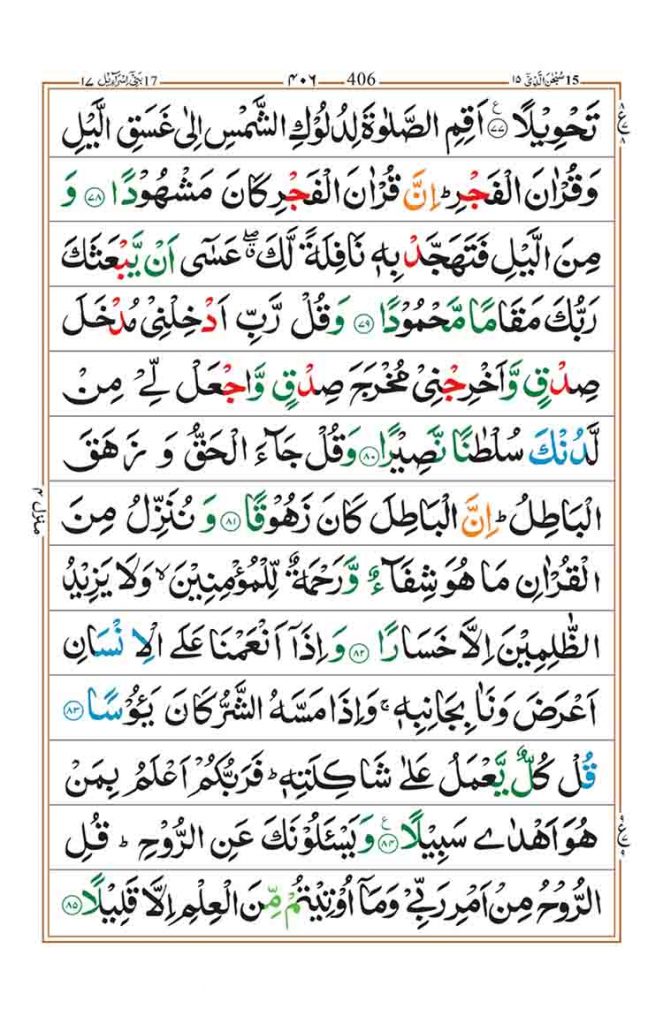 سُبْحٰنَ الَّذِیْۤ ١٥ 15
406 ۴۰۶
17 بَنِیْۤ اِسْرَآءِیْل ١٧
تَحْوِیْلًا ۝٧٧ ع اَقِمِ الصَّلٰوةَ لِدُلُوْكِ الشَّمْسِ اِلٰى غَسَقِ الَّیْلِ
وَقُرْاٰنَ الْفَجْرِؕ اِنَّ قُرْاٰنَ الْفَجْرِ كَانَ مَشْهُوْدًا ۝٧٨ وَ
مِنَ الَّیْلِ فَتَهَجَّدْ بِهٖ نَافِلَةً لَّكَ ۖۗ عَسٰۤى اَنْ یَّبْعَثَكَ
رَبُّكَ مَقَامًا مَّحْمُوْدًا ۝٧٩ وَقُلْ رَّبِّ اَدْخِلْنِیْ مُدْخَلَ
صِدْقٍ وَّاَخْرِجْنِیْ مُخْرَجَ صِدْقٍ وَّاجْعَلْ لِّیْ مِنْ
لَّدُنْكَ سُلْطٰنًا نَّصِیْرًا ۝٨٠ وَقُلْ جَآءَ الْحَقُّ وَ زَهَقَ
الْبَاطِلُؕ اِنَّ الْبَاطِلَ كَانَ زَهُوْقًا ۝٨١ وَ نُنَزِّلُ مِنَ
الْقُرْاٰنِ مَا هُوَ شِفَآءٌ وَّرَحْمَةٌ لِّلْمُؤْمِنِیْنَ ۙ وَلَا یَزِیْدُ
الظّٰلِمِیْنَ اِلَّا خَسَارًا ۝٨٢ وَاِذَاۤ اَنْعَمْنَا عَلَى الْاِنْسَانِ
اَعْرَضَ وَنَاٰ بِجَانِبِهٖ ۚ وَاِذَا مَسَّهُ الشَّرُّ كَانَ یَـُٔوْسًا ۝٨٣
قُلْ كُلٌّ یَّعْمَلُ عَلٰى شَاكِلَتِهٖؕ فَرَبُّكُمْ اَعْلَمُ بِمَنْ
هُوَ اَهْدٰى سَبِیْلًا ۝٨٤ ع وَیَسْـَٔلُوْنَكَ عَنِ الرُّوْحِؕ قُلِ
الرُّوْحُ مِنْ اَمْرِ رَبِّیْ وَمَاۤ اُوْتِیْتُمْ مِّنَ الْعِلْمِ اِلَّا قَلِیْلًا ۝٨٥
منزل ۴